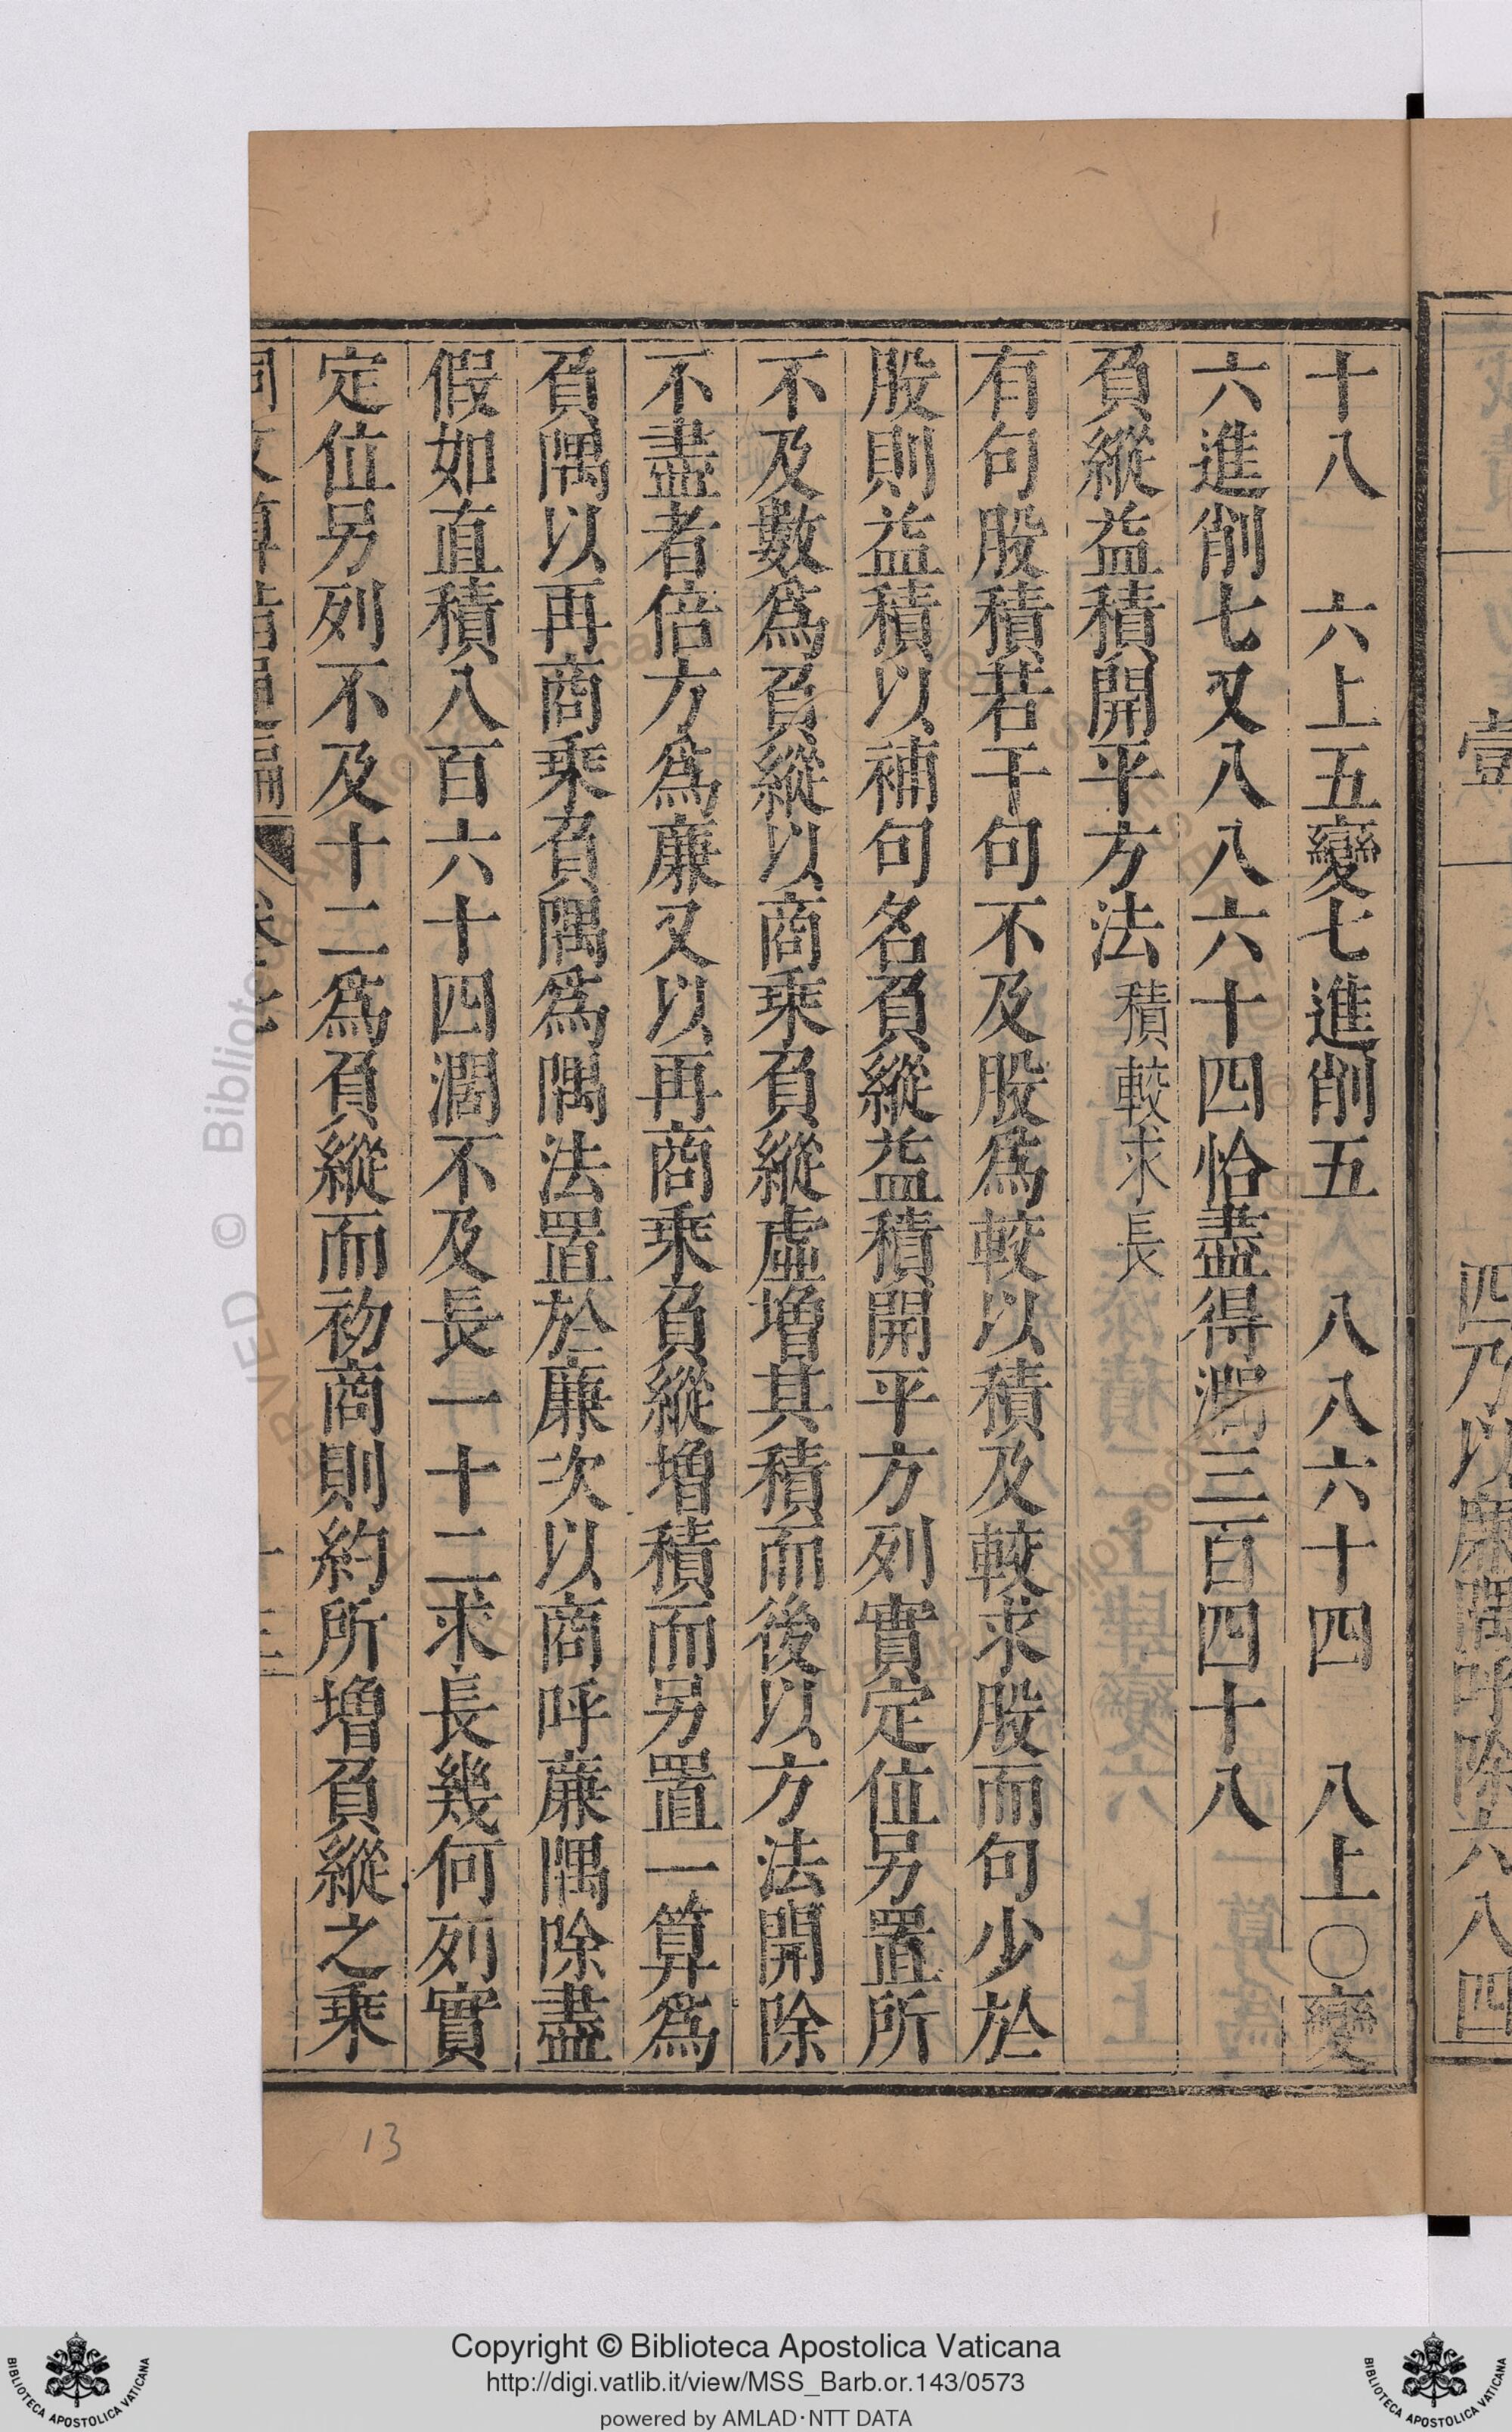 壹
四乃以廉隅呼除六八四
十八　六上五變七進削五　八八六十四　八上〇變
六進削七又八八六十四恰盡得濶三百四十八
負縱益積開平方法 積較求長
有句股積若干句不及股爲較以積及較求股而句少於
股則益積以補句名負縱益積開平方列實定位另置所
不及數爲負縱以商乘負縱虛增其積而後以方法開除
不盡者倍方爲廉又以再商乘負縱增積而另置一算爲
負隅以再商乘負隅爲隅法置於廉次以商呼廉隅除盡
假如直積八百六十四濶不及長一十二求長幾何列實
定位另列不及十二爲負縱而初商則約所增負縱之乘
13
© Biblioteca Apostolica Vaticana
Copyright © Biblioteca Apostolica Vaticana
http://digi.vatlib.it/view/MSS_Barb.or.143/0573
powered by AMLAD·NTT DATA
BIBLIOTECA APOSTOLICA VATICANA
BIBLIOTECA APOSTOLICA VATICANA